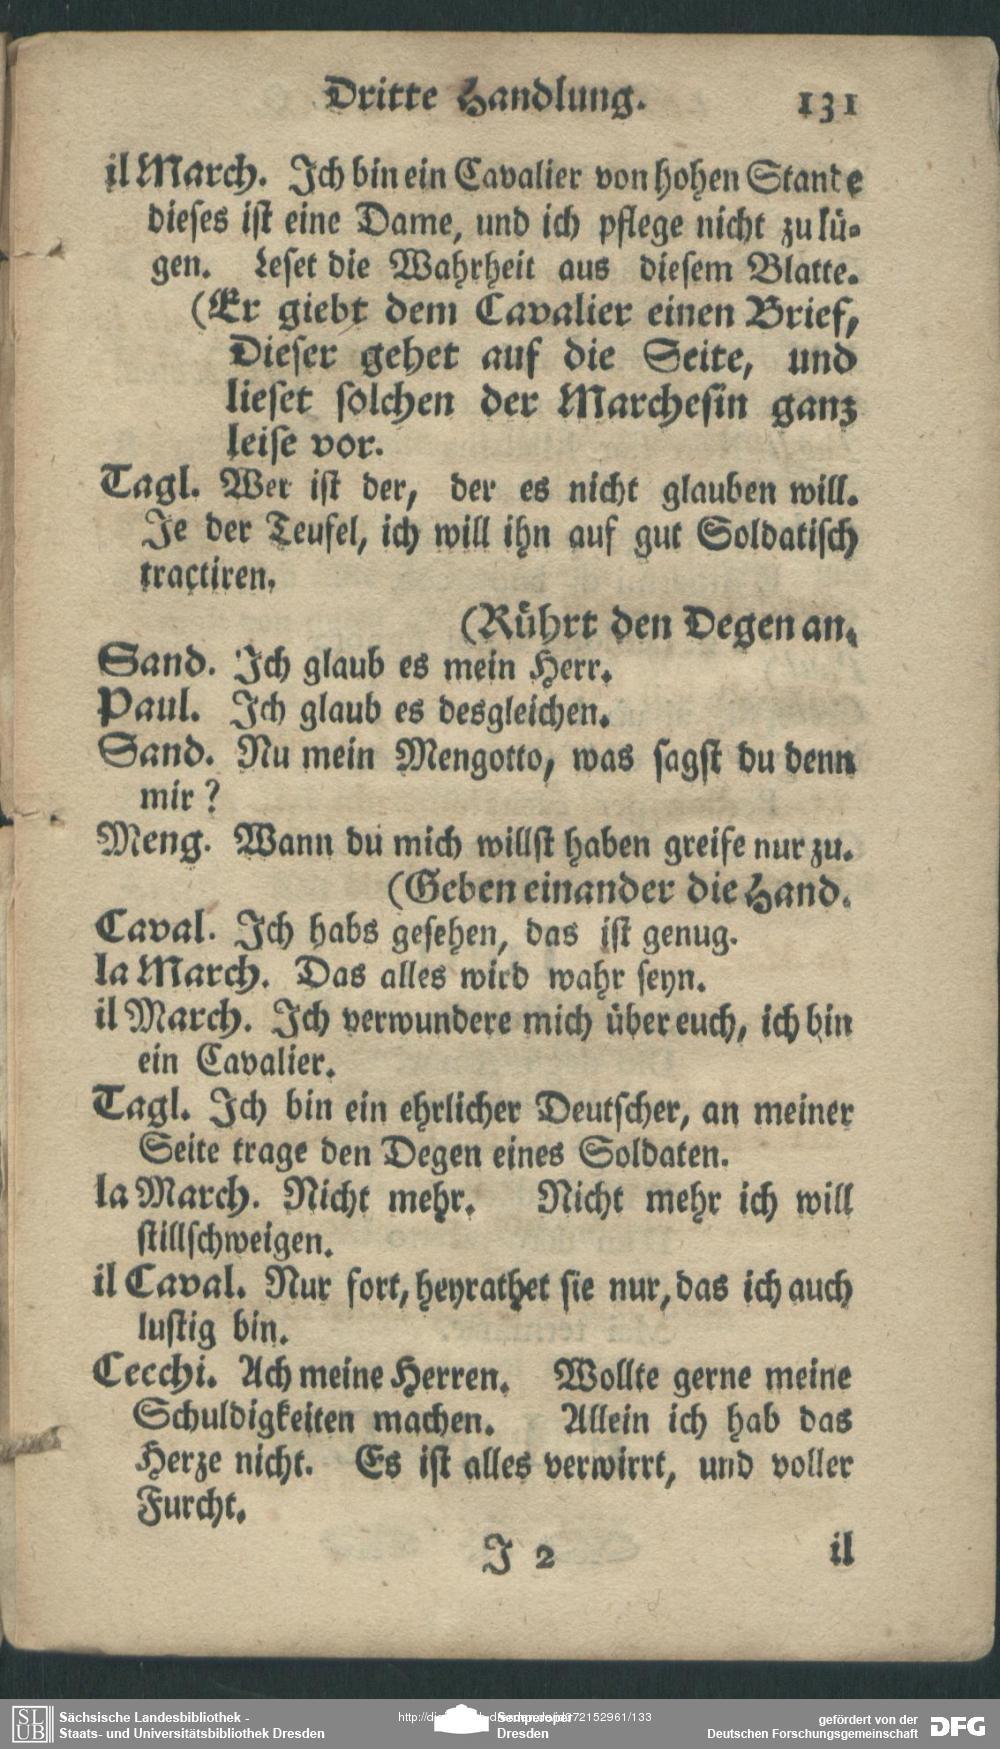 Dritte Handlung. 131
il March. Ich bin ein Cavalier von hohen Stande
dieses ist eine Dame, und ich pflege nicht zu lü-
gen. Leset die Wahrheit aus diesem Blatte.
(Er giebt dem Cavalier einen Brief,
Dieser gehet auf die Seite, und
lieset solchen der Marchesin ganz
leise vor.
Tagl. Wer ist der, der es nicht glauben will.
Je der Teufel, ich will ihn auf gut Soldatisch
tractiren.
(Rührt den Degen an.
Sand. Ich glaub es mein Herr.
Paul. Ich glaub es desgleichen.
Sand. Nu mein Mengotto, was sagst du denn
mir?
Meng. Wann du mich willst haben greife nur zu.
(Geben einander die Hand.
Caval. Ich habs gesehen, das ist genug.
la March. Das alles wird wahr seyn.
il March. Ich verwundere mich über euch, ich bin
ein Cavalier.
Tagl. Ich bin ein ehrlicher Deutscher, an meiner
Seite trage den Degen eines Soldaten.
la March. Nicht mehr. Nicht mehr ich will
stillschweigen.
il Caval. Nur fort, heyrathet sie nur, das ich auch
lustig bin.
Cecchi. Ach meine Herren. Wollte gerne meine
Schuldigkeiten machen. Allein ich hab das
Herze nicht. Es ist alles verwirrt, und voller
Furcht.
J 2 il
SLUB
Sächsische Landesbibliothek -
Staats- und Universitätsbibliothek Dresden
Semperoper
Dresden
gefördert von der
Deutschen Forschungsgemeinschaft
DFG